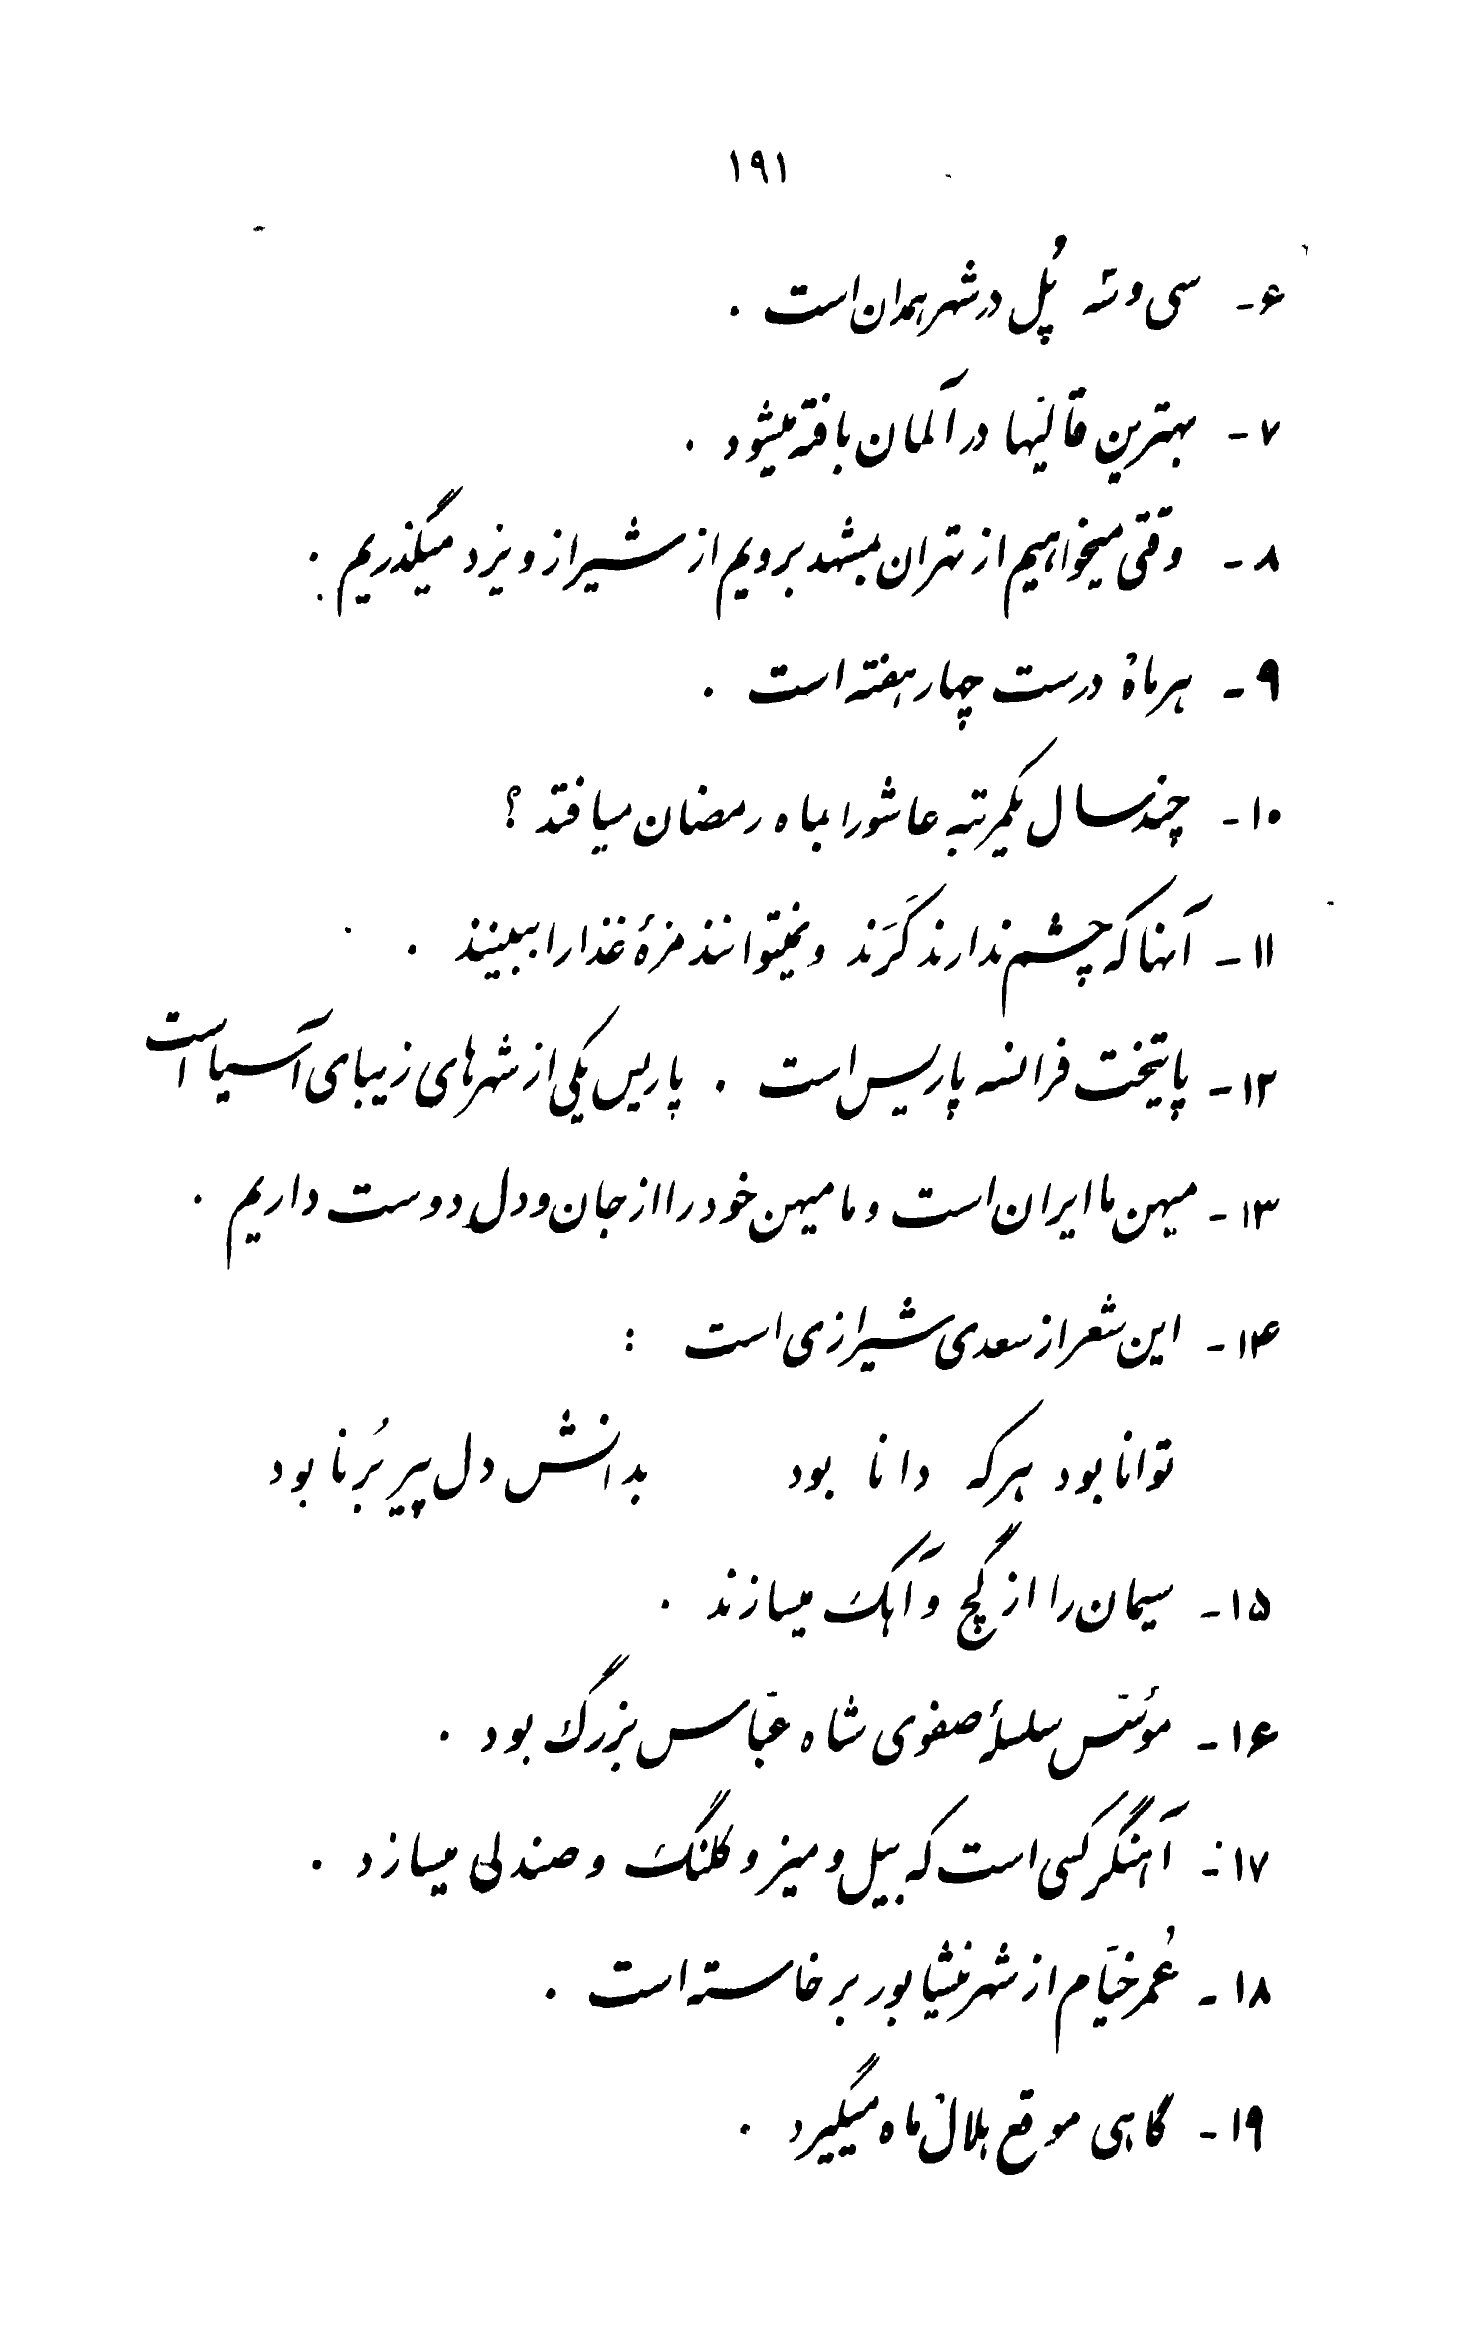 ۱۹۱
۶- سی و سه پُل در شهر همدان است .
۷- بهترین قالیها در آلمان بافته میشود .
۸- وقتی میخواهیم از تهران بمشهد برویم از شیراز و یزد میگذریم .
۹- هر ماه درست چهار هفته است .
۱۰- چند سال یکمرتبه عاشورا بماه رمضان میافتد ؟
۱۱- آنها که چشم ندارند کَرَند و نمیتوانند مزهٔ غذا را ببینند .
۱۲- پایتخت فرانسه پاریس است . پاریس یکی از شهرهای زیبای آسیا است
۱۳- میهن ما ایران است و ما میهن خود را از جان و دل دوست داریم .
۱۴- این شعر از سعدی شیرازی است :
توانا بود هر که دانا بود بدانش دل پیر بُرنا بود
۱۵- سیمان را از گچ و آهک میسازند .
۱۶- مؤسّس سلسلهٔ صفوی شاه عبّاس بزرگ بود .
۱۷- آهنگر کسی است که بیل و میز و کلنگ و صندلی میسازد .
۱۸- عُمر خیّام از شهر نیشابور برخاسته است .
۱۹- گاهی موقع هلال ماه میگیرد .